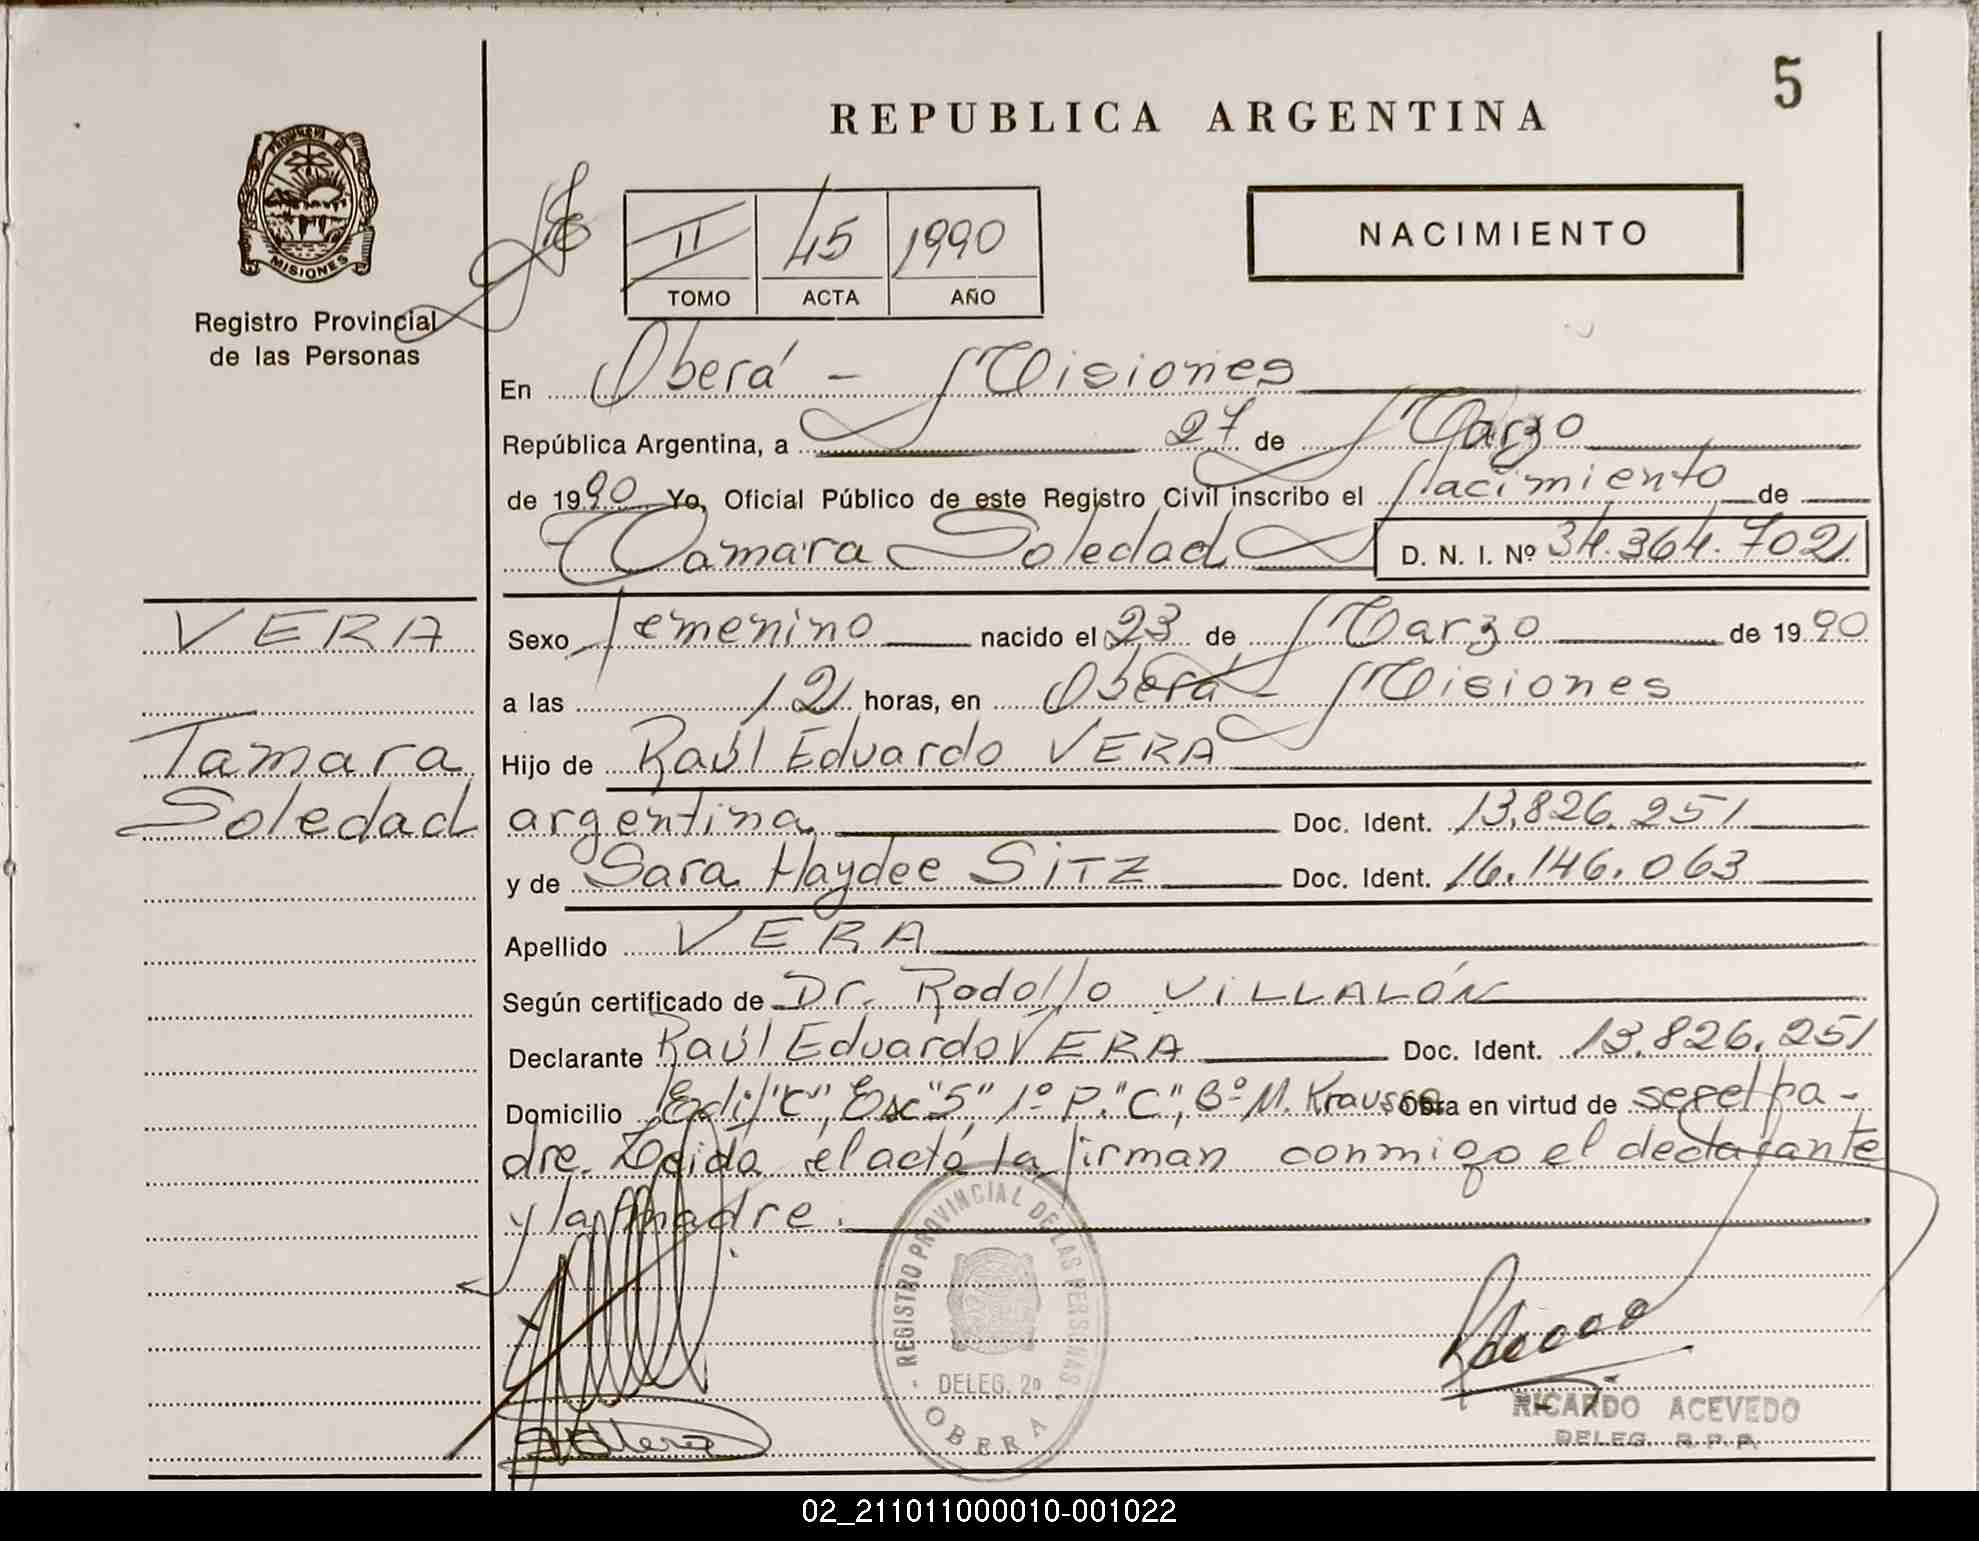 5
REPUBLICA ARGENTINA
PROVINCIA DE
MISIONES
Registro Provincial
de las Personas
II 45 1990
TOMO ACTA AÑO
NACIMIENTO
En Oberá - Misiones
República Argentina, a 27 de Marzo
de 1990 Yo, Oficial Público de este Registro Civil inscribo el nacimiento de
Tamara Soledad D. N. I. Nº 34.364.702
VERA
Tamara
Soledad
Sexo femenino nacido el 23 de Marzo de 1990
a las 12 horas, en Oberá - Misiones
Hijo de Raúl Eduardo VERA
argentina Doc. Ident. 13.826.251
y de Sara Haydee SITZ Doc. Ident. 16.146.063
Apellido VERA
Según certificado de Dr. Rodolfo VILLALÓN
Declarante Raúl Eduardo VERA Doc. Ident. 13.826.251
Domicilio Edif "C", Esc "5", 1º P. "C", Bº M. Krausse Obra en virtud de ser el pa-
dre. Leída el acta la firman conmigo el declarante
y la madre.
REGISTRO PROVINCIAL DE LAS PERSONAS
DELEG. 2º
OBERA
RICARDO ACEVEDO
DELEG. R.P.P.
02_211011000010-001022